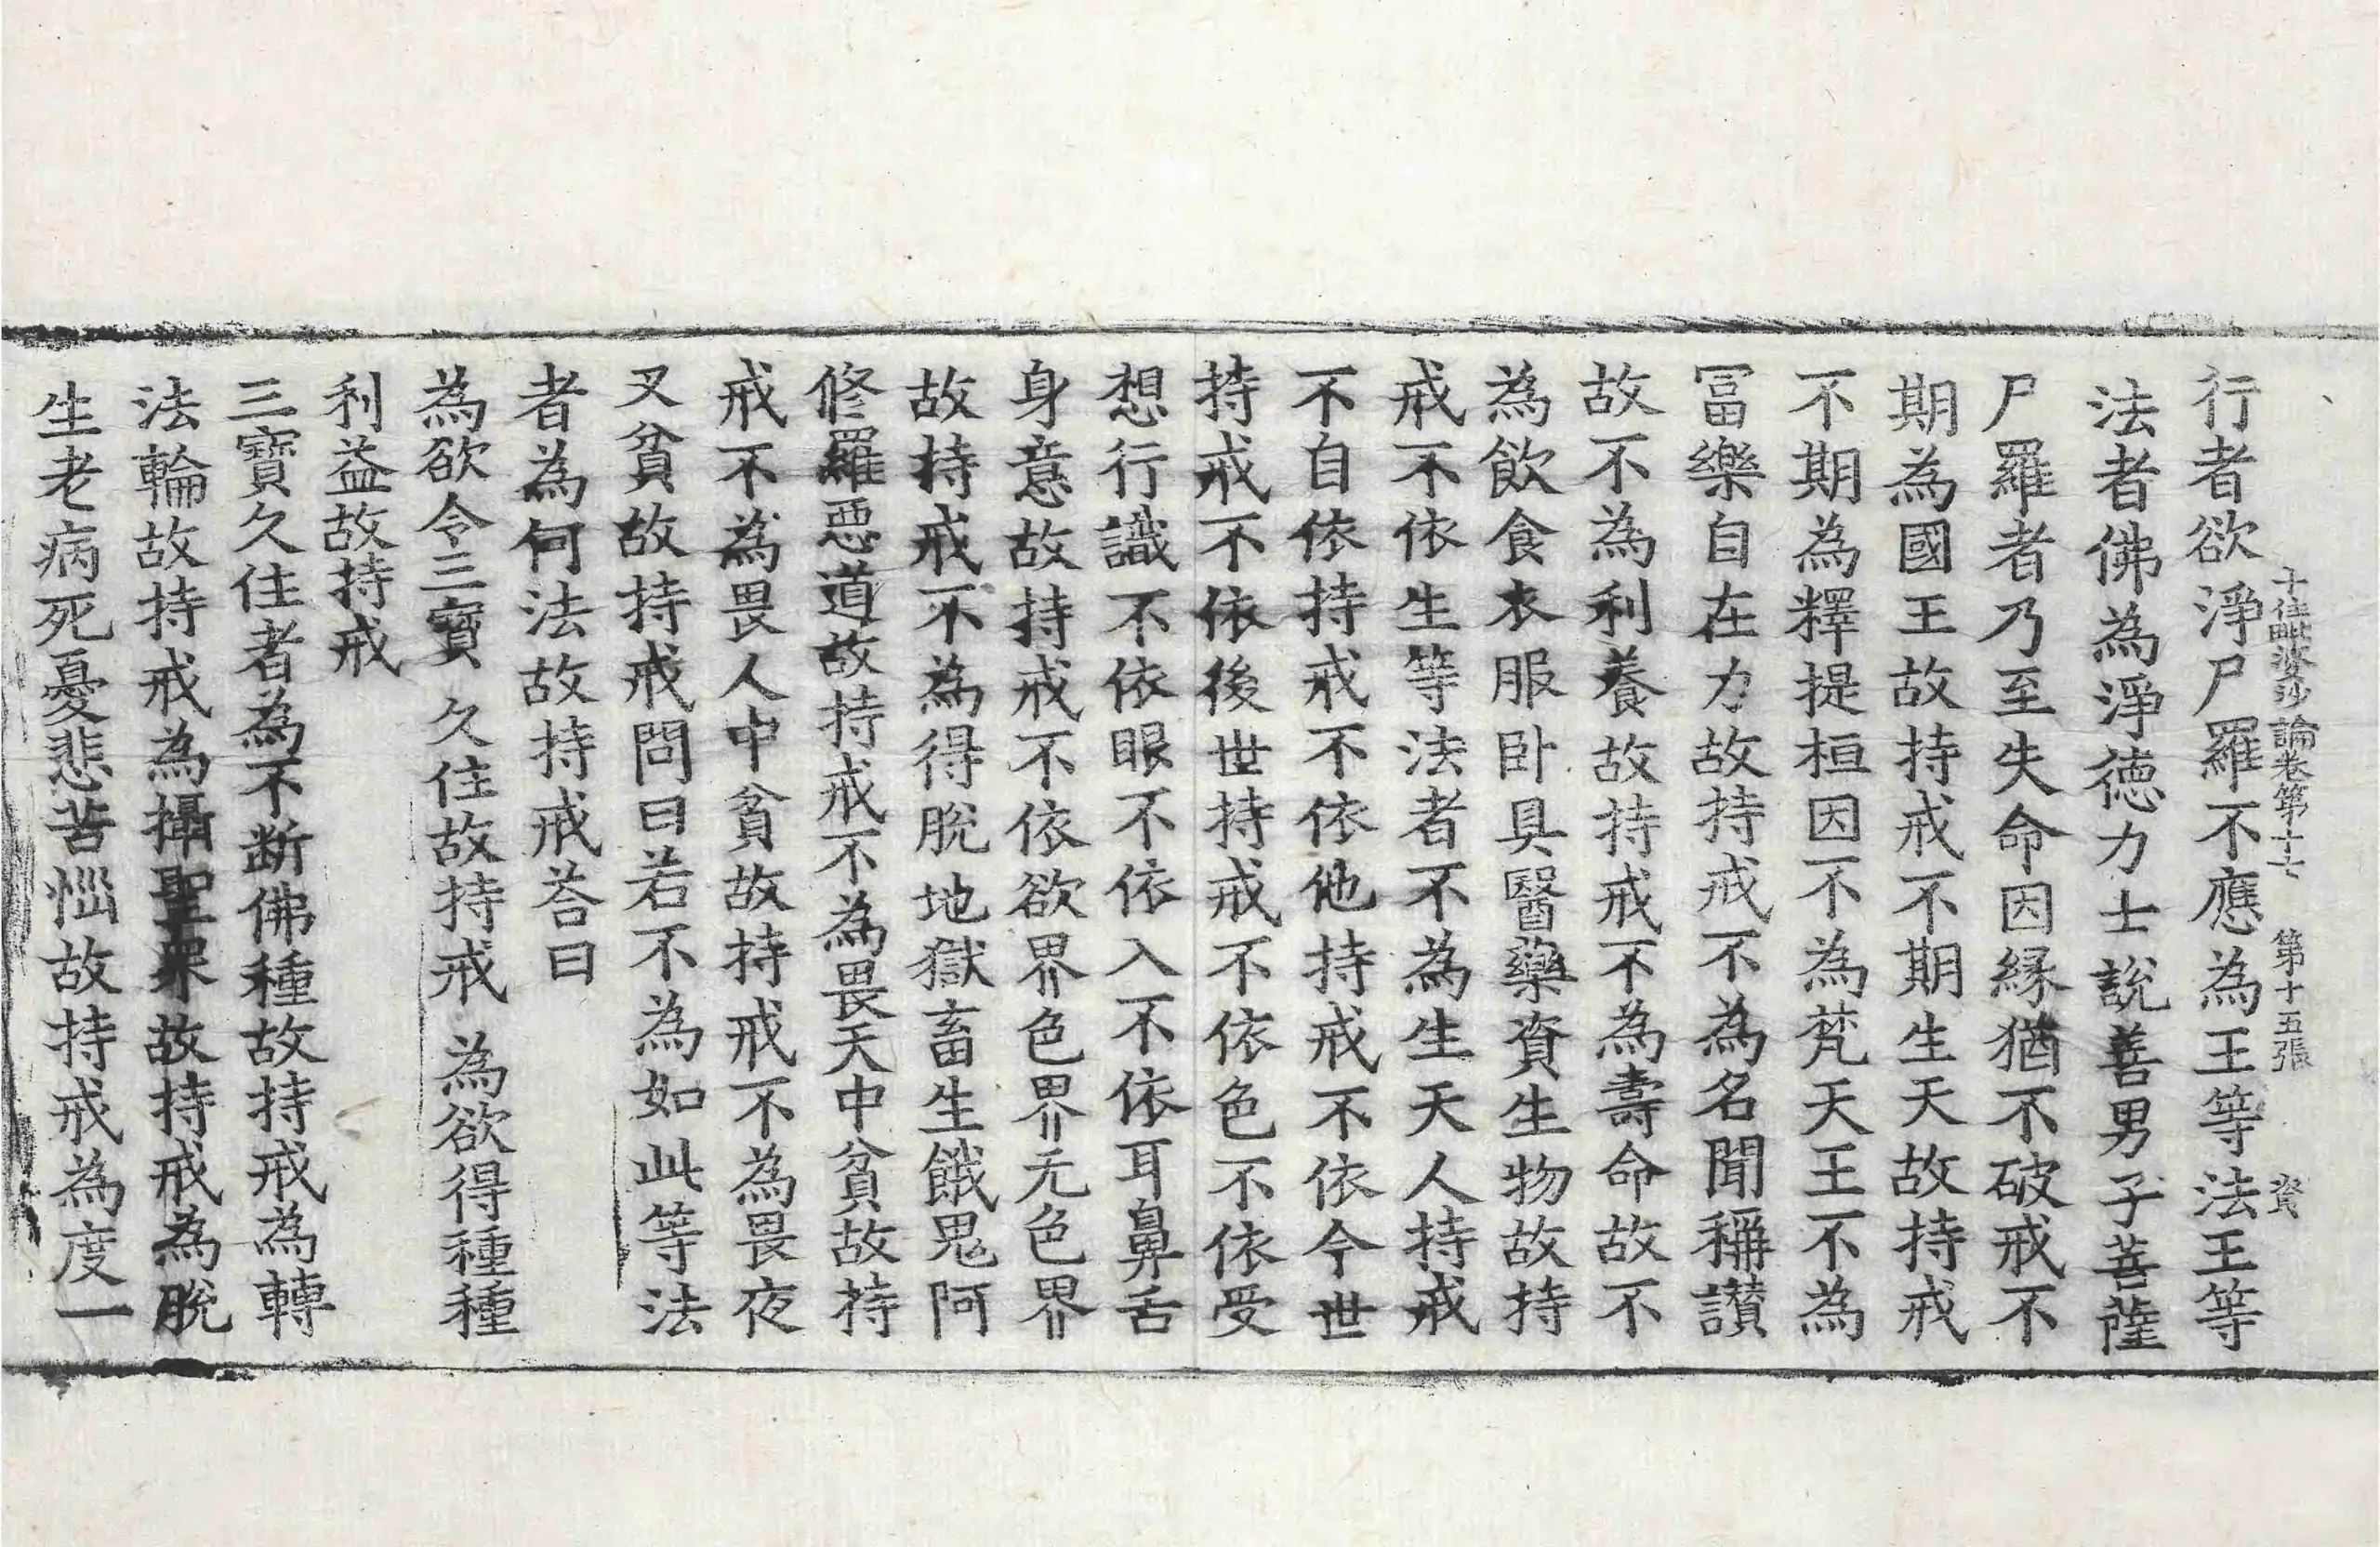 十住毗婆沙論卷第十七　第十五張　資
行者欲淨尸羅不應為王等法王等
法者佛為淨德力士說善男子菩薩
尸羅者乃至失命因緣猶不破戒不
期為國王故持戒不期生天故持戒
不期為釋提桓因不為梵天王不為
冨樂自在力故持戒不為名聞稱讃
故不為利養故持戒不為壽命故不
為飲食衣服卧具醫藥資生物故持
戒不依生等法者不為生天人持戒
不自依持戒不依他持戒不依今世
持戒不依後世持戒不依色不依受
想行識不依眼不依入不依耳鼻舌
身意故持戒不依欲界色界无色界
故持戒不為得脫地獄畜生餓鬼阿
修羅惡道故持戒不為畏天中貧故持
戒不為畏人中貧故持戒不為畏夜
叉貧故持戒問曰若不為如此等法
者為何法故持戒荅曰
為欲令三寶　久住故持戒　為欲得種種
利益故持戒
三寶久住者為不断佛種故持戒為轉
法輪故持戒為攝聖衆故持戒為脫
生老病死憂悲苦惱故持戒為度一